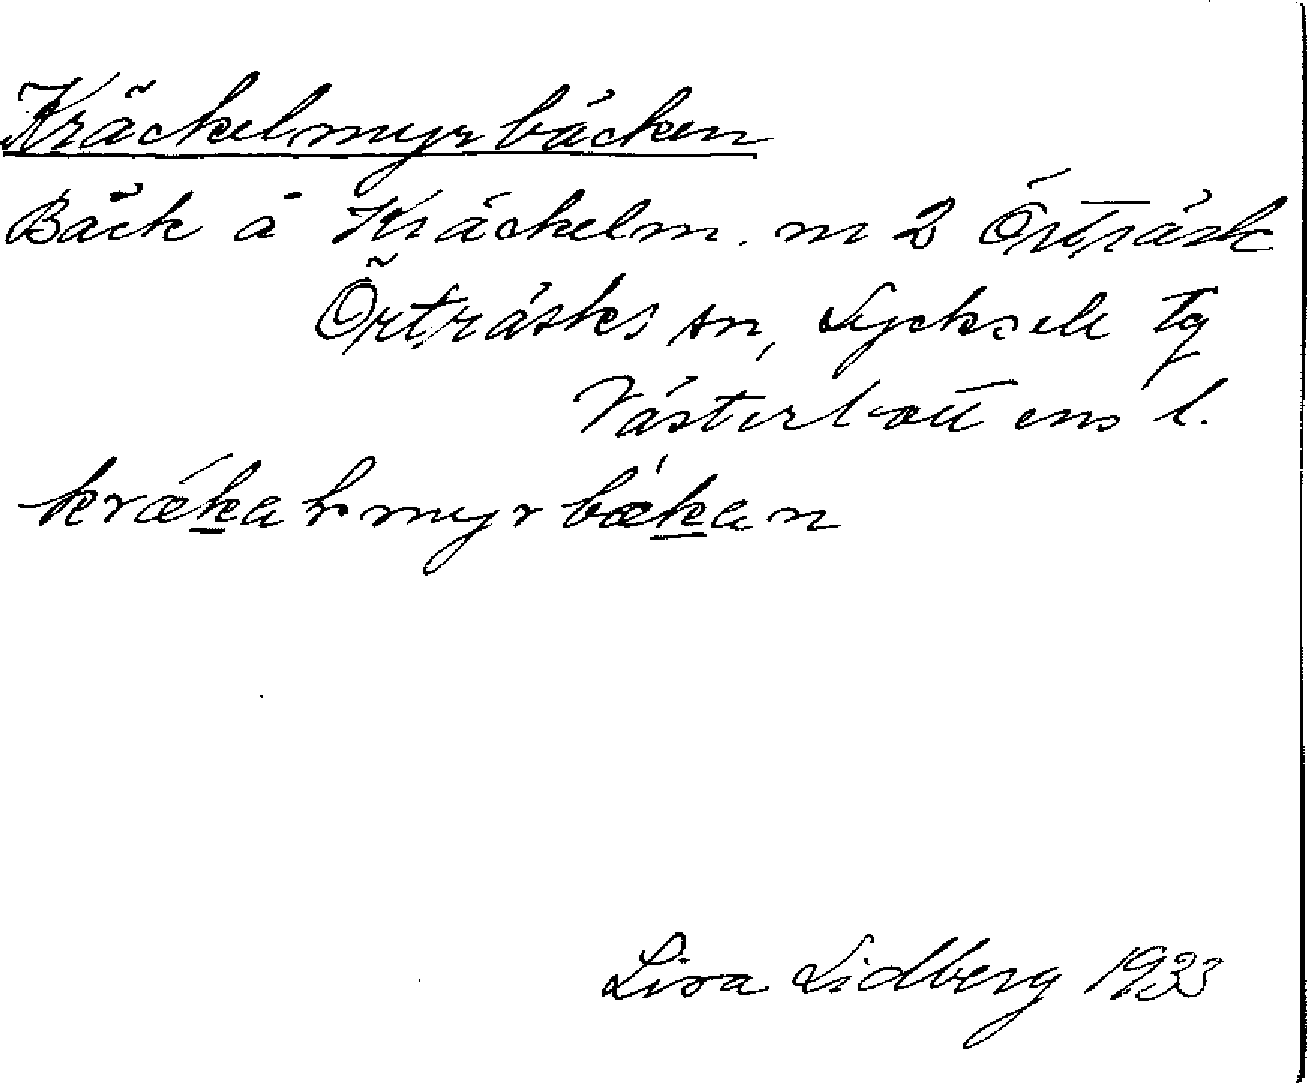 Kräckelmyrbäcken
Bäck å Kräckelm. m 2 Örträsk
Örträsks sn, Lycksele tg
Västerbottens l.
kræ̀kalmyrbækan
Lisa Lidberg 1933